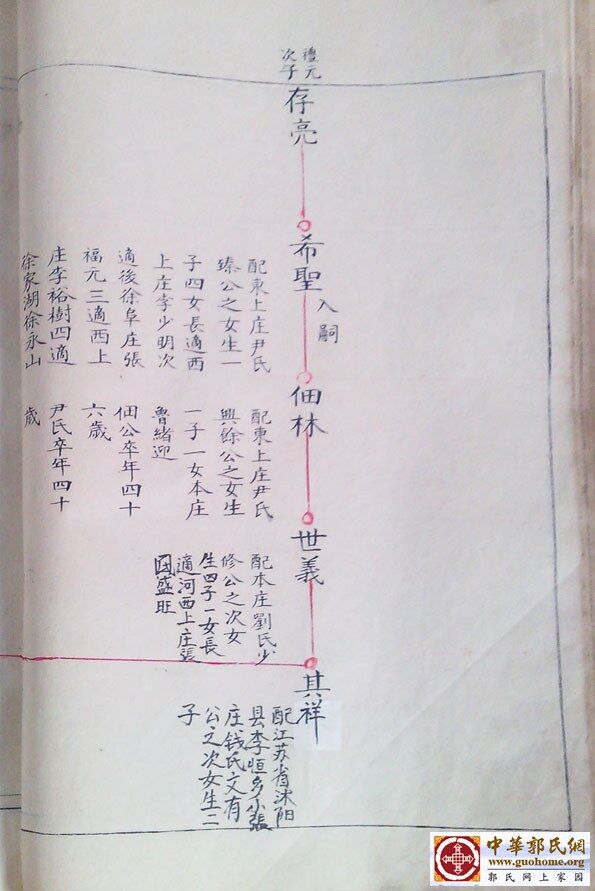 禮元
次子
存亮
希聖
入嗣
配東上庄尹氏
臻公之女生一
子四女長適西
上庄李少明次
適後徐阜庄張
福元三適西上
庄李裕樹四適
徐家湖徐永山
佃林
配東上庄尹氏
興餘公之女生
一子一女本庄
魯緒迎
佃公卒年四十
六歲
尹氏卒年四十
歲
世義
配本庄劉氏少
修公之次女
生四子一女長
適河西上庄張
國盛旺
其祥
配江苏省沭阳
县李恒乡小張
庄钱氏文有
公之次女生二
子
中華郭氏網
www.guohome.org
郭氏网上家园